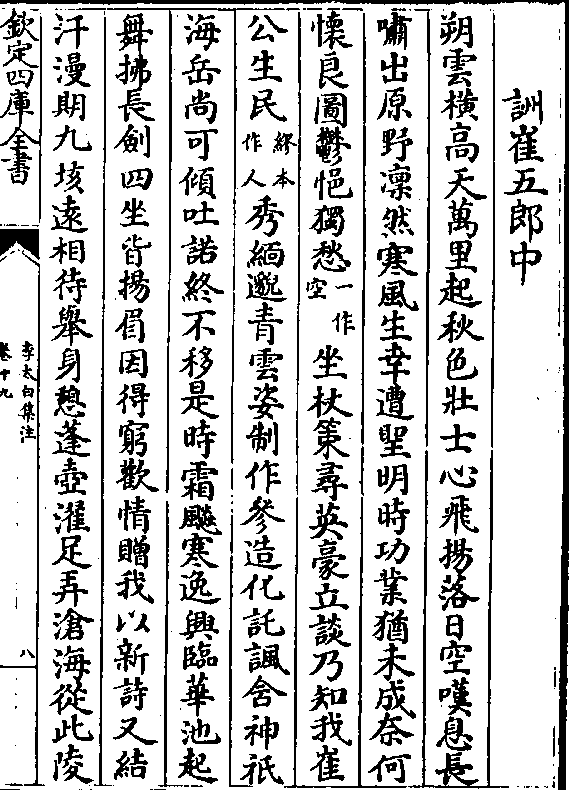 詶崔五郎中
朔雲橫高天萬里起秋色壯士心飛揚落日空嘆息長
嘯出原野凛然寒風生幸遭聖明時功業猶未成奈何
懷良圖鬱悒獨愁一作空坐杖策尋英豪立談乃知我崔
公生民繆本作人秀緬邈青雲姿制作參造化託諷含神祇
海岳尚可傾吐諾終不移是時霜飈寒逸興臨華池起
舞拂長劍四坐皆揚眉因得窮歡情贈我以新詩又結
汗漫期九垓遠相待舉身憩蓬壺濯足弄滄海從此陵
欽定四庫全書
李太白集注
卷十九
八